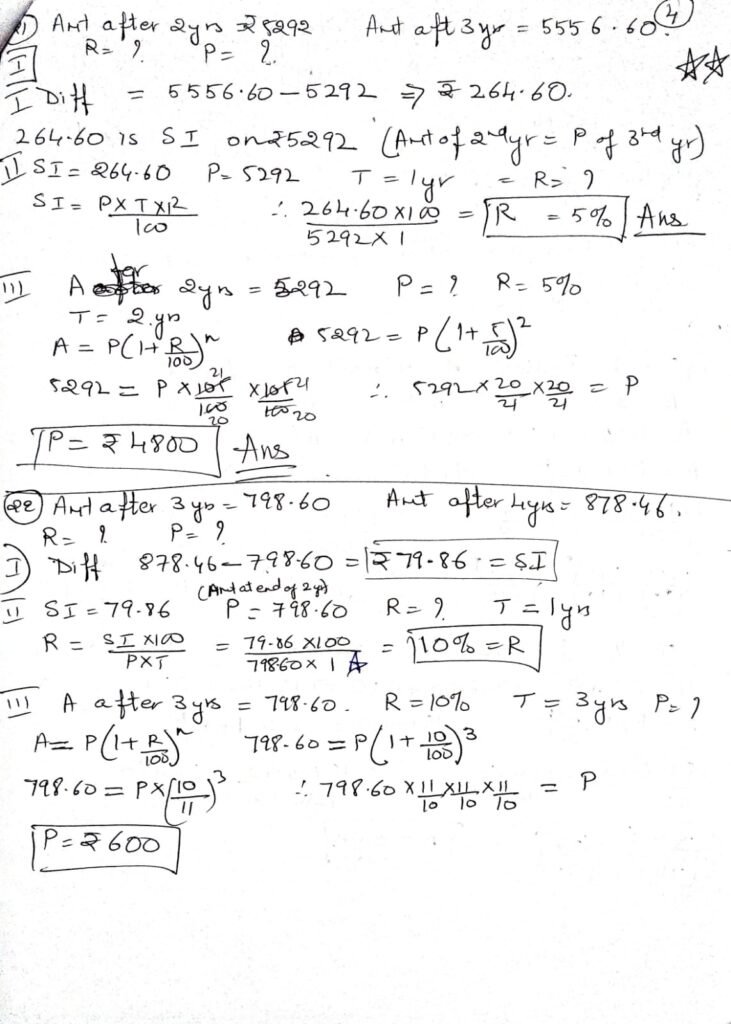 1) Amt after 2yrs ₹5292 Amt aft 3yr = 5556.60. 4
R= ? P= ?
I Diff = 5556.60 – 5292 ⇒ ₹ 264.60.
264.60 is SI on ₹5292 (Amt of 2nd yr = P of 3rd yr)
II SI = 264.60 P= 5292 T = 1yr = R= ?
SI = PXTXR/100 ∴ 264.60 X100/5292X1 = R = 5% Ans
III A for 2yrs = 5292 P= ? R= 5%
T= 2.yrs
A = P(1+R/100)ⁿ 5292 = P(1+5/100)²
5292 = P X 105/100 X 105/100 21 20 21 20 ∴ 5292 X 20/21 X 20/21 = P
P= ₹ 4800 Ans
Q2 Amt after 3 yrs = 798.60 Amt after 4yrs = 878.46.
R= ? P= ?
I) Diff 878.46 – 798.60 = ₹ 79.86 = SI
(Amt at end of 2yr)
II SI = 79.86 P = 798.60 R= ? T = 1yrs
R = SI X100/PXT = 79.86 X100/79860X 1 = 10% = R
III A after 3yrs = 798.60. R=10% T= 3yrs P= ?
A= P(1+R/100)ⁿ 798.60 = P(1+10/100)³
798.60 = PX(10/11)³ ∴ 798.60 X 11/10 X 11/10 X 11/10 = P
P= ₹ 600